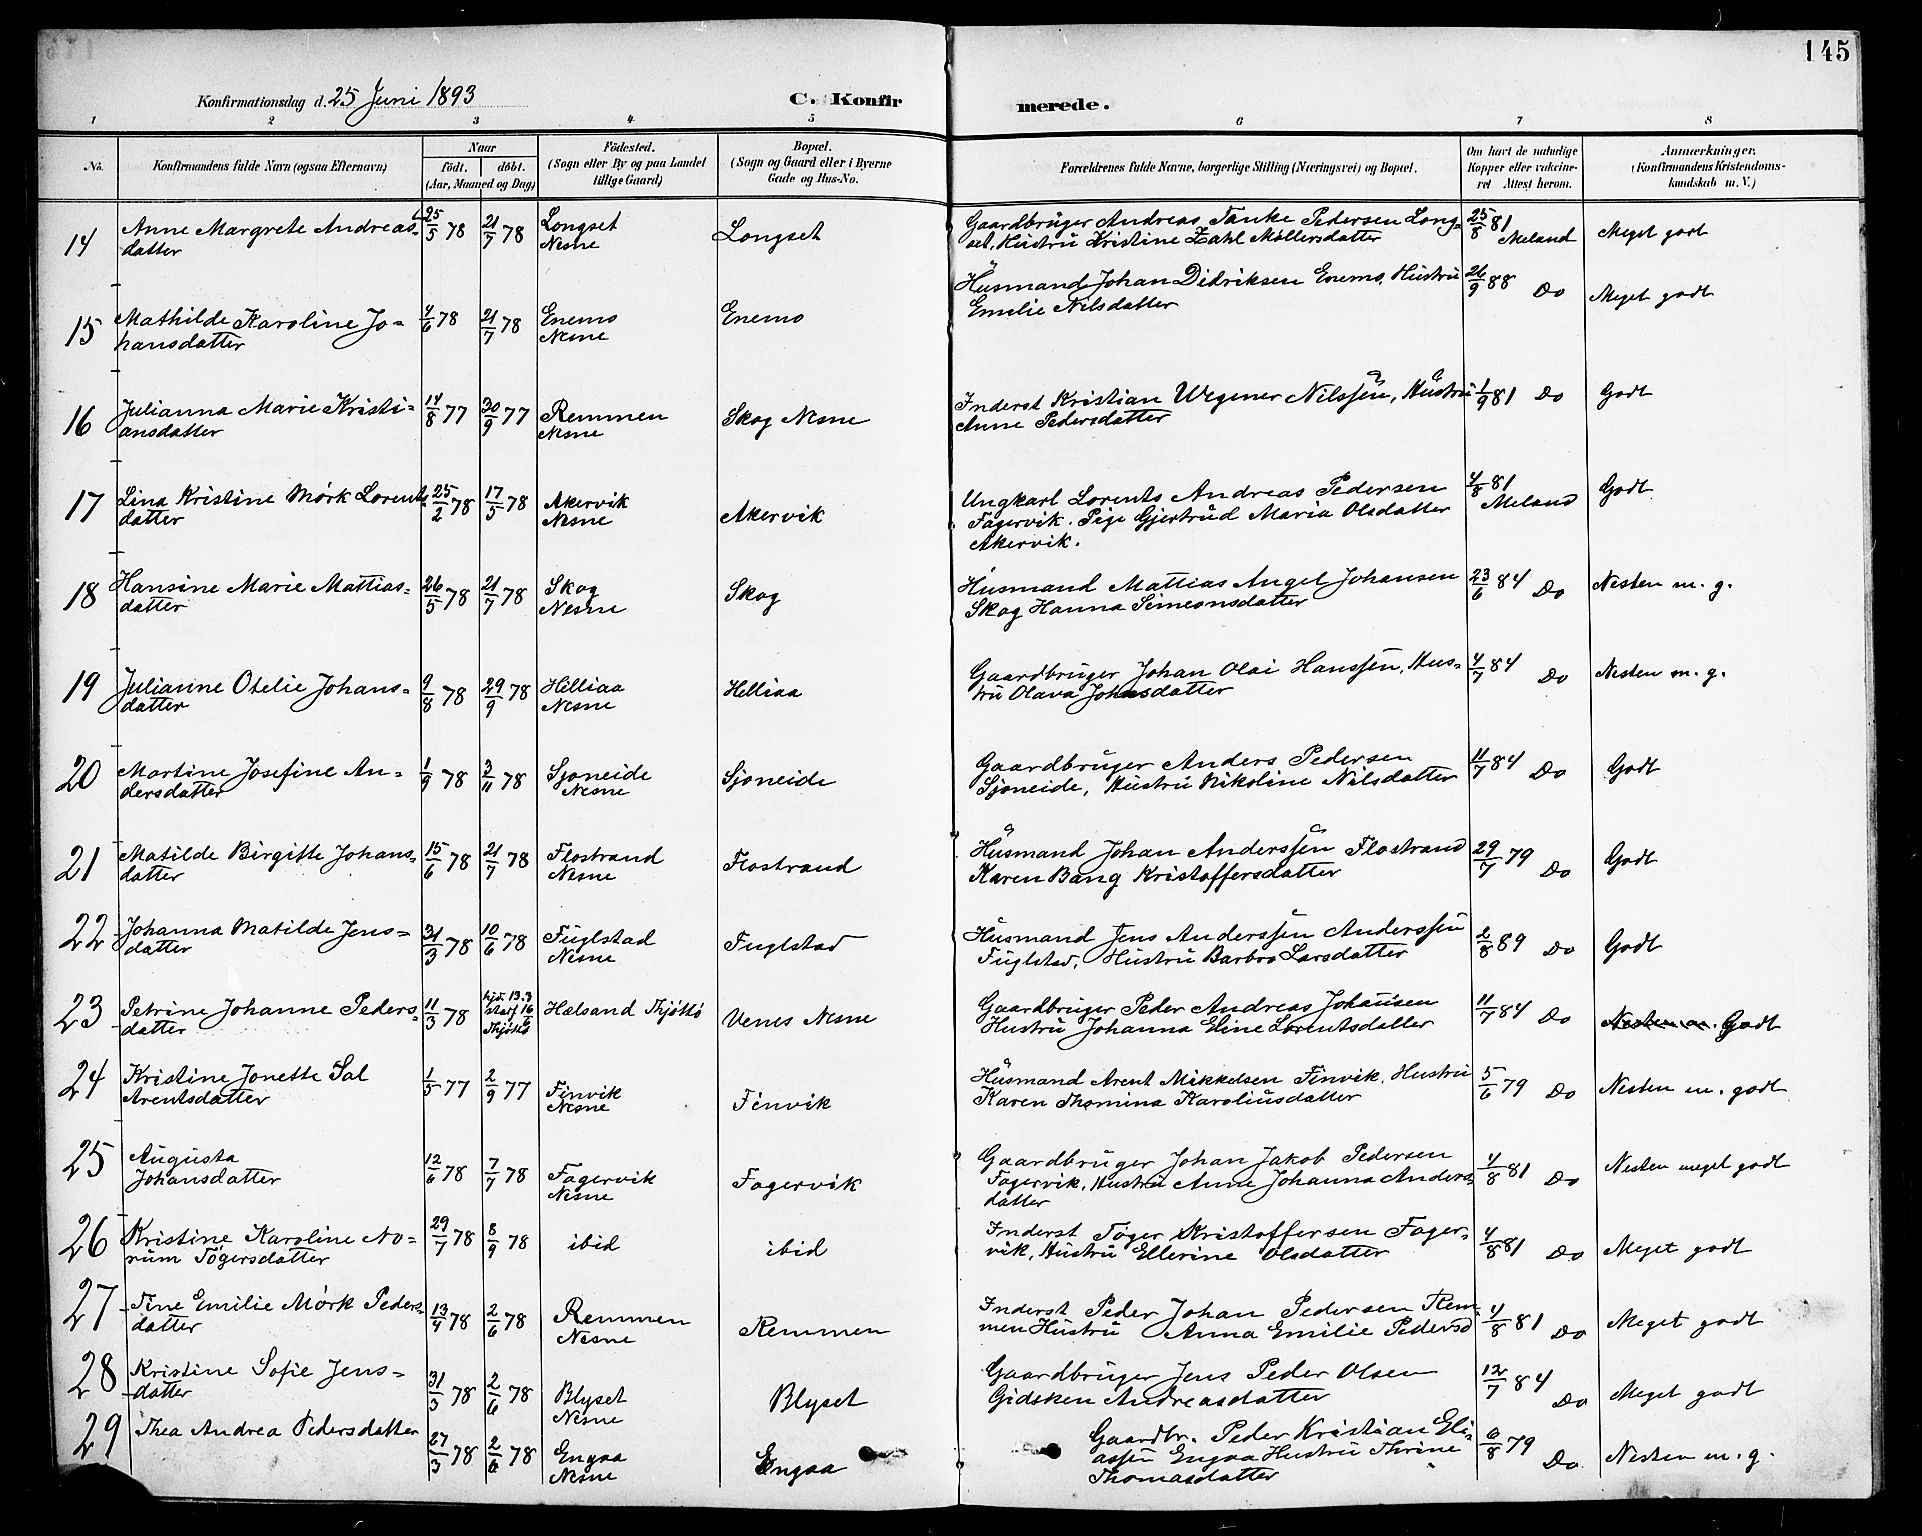 145
Konfirmationsdag d. 25 Juni 1893
C. Konfirmerede.
1 2 3 4 5 6 7 8
No.
Konfirmandens fulde Navn (ogsaa Efternavn)
Naar
født. døbt.
(Aar, Maaned og Dag)
Fødested.
(Sogn eller By og paa Landet
tillige Gaard)
Bopæl.
(Sogn og Gaard eller i Byerne
Gade og Hus-No.
Forældrenes fulde Navne, borgerlige Stilling (Næringsvei) og Bopæl.
Om havt de naturlige
Kopper eller vaccine-
ret Attest herom.
Anmærkninger.
(Konfirmandens Kristendoms-
kundskab m. V.)
14 Anne Margrete Andreas-
datter
25/5 78 21/7 78
Longset
Nesne
Longset
Gaardbruger Andreas Tanke Pedersen Long-
set, Hustru Kristine Zahl Møllersdatter
25/8 81
Meland
Meget godt
15 Mathilde Karoline Jo-
hansdatter
4/6 78 21/7 78
Enemo
Nesne
Enemo
Husmand Johan Didriksen Enemo, Hustru
Emilie Nilsdatter
26/9 88 Do
Meget godt
16 Julianna Marie Kristi-
ansdatter
14/8 77 30/9 77
Remmen
Nesne
Skog Nesne
Inderst Kristian Wegener Nilssen, Hustru
Anne Pedersdatter
1/9 81 Do
Godt
17 Lina Kristine Mørk Lorents-
datter
25/2 78 17/5 78
Akervik
Nesne
Akervik
Ungkarl Lorents Andreas Pedersen
Fagervik. Pige Gjertrud Maria Olsdatter
Akervik.
4/8 81
Meland
Godt
18 Hansine Marie Mattias-
datter
26/5 78 21/7 78
Skog
Nesne
Skog
Husmand Mattias Angel Johansen
Skog Hanna Simeonsdatter
23/6 84 Do
Nesten m. g.
19 Julianne Otelie Johans-
datter
9/8 78 29/9 78
Helliaa
Nesne
Helliaa
Gaardbruger Johan Olai Hanssen, Hus-
tru Olava Johnsdatter
4/7 84 Do
Nesten m. g.
20 Martine Josefine An-
dersdatter
1/9 78 3/11 78
Sjoneide
Nesne
Sjoneide
Gaardbruger Anders Pedersen
Sjoneide, Hustru Nikoline Nilsdatter
11/7 84 Do
Godt
21 Matilde Birgitte Johans-
datter
15/6 78 21/7 78
Flostrand
Nesne
Flostrand
Husmand Johan Anderssen Flostrand
Karen Bang Kristoffersdatter
29/7 79 Do
Godt
22 Johanna Matilde Jens-
datter
31/3 78 10/6 78
Fuglstad
Nesne
Fuglstad
Husmand Jens Anderssen Anderssen
Fuglstad, Hustru Barbro Larsdatter
2/8 89 Do
Godt
23 Petrine Johanne Peders-
datter
11/3 78 hjd. 13.3
Thjøttø
Hælsand Thjøttø
Venes Nesne
Gaardbruger Peder Andreas Johansen
Hustru Johanna Eline Lorentsdatter
11/7 84 Do
Nesten m. Godt
24 Kristine Jonette Sal
Arentsdatter
1/5 77 2/9 77
Finvik
Nesne
Finvik
Husmand Arent Mikkelsen Finvik, Hustru
Karen Thomina Karoliusdatter
5/6 79 Do
Nesten m. godt
25 Augusta
Johansdatter
12/6 78 7/7 78
Fagervik
Nesne
Fagervik
Gaardbruger Johan Jakob Pedersen
Fagervik, Hustru Anne Johanna Anders-
datter
4/8 81 Do
Nesten meget godt
26 Kristine Karoline No-
rum Tøgersdatter
29/7 78 8/9 78
ibid
ibid
Inderst Tøger Kristoffersen Fager-
vik, Hustru Ellerine Olsdatter
4/8 81 Do
Meget godt
27 Tine Emilie Mørk Peders-
datter
13/4 78 2/6 78
Remmen
Nesne
Remmen
Inderst Peder Johan Pedersen Rem-
men Hustru Anna Emilie Pedersd
4/8 81 Do
Meget godt
28 Kristine Sofie Jens-
datter
31/3 78 2/6 78
Blyset
Nesne
Blyset
Gaardbruger Jens Peder Olsen
Gidsken Andreasdatter
12/7 84
Do
Meget godt
29 Thea Andrea Pedersdatter
27/3 78 2/6 78
Engaa
Nesne
Engaa
Gaardbr. Peder Kristian Eli-
assen Engaa Hustru Thrine
Thomasdatter
6/8 79
Do
Nesten m. g.